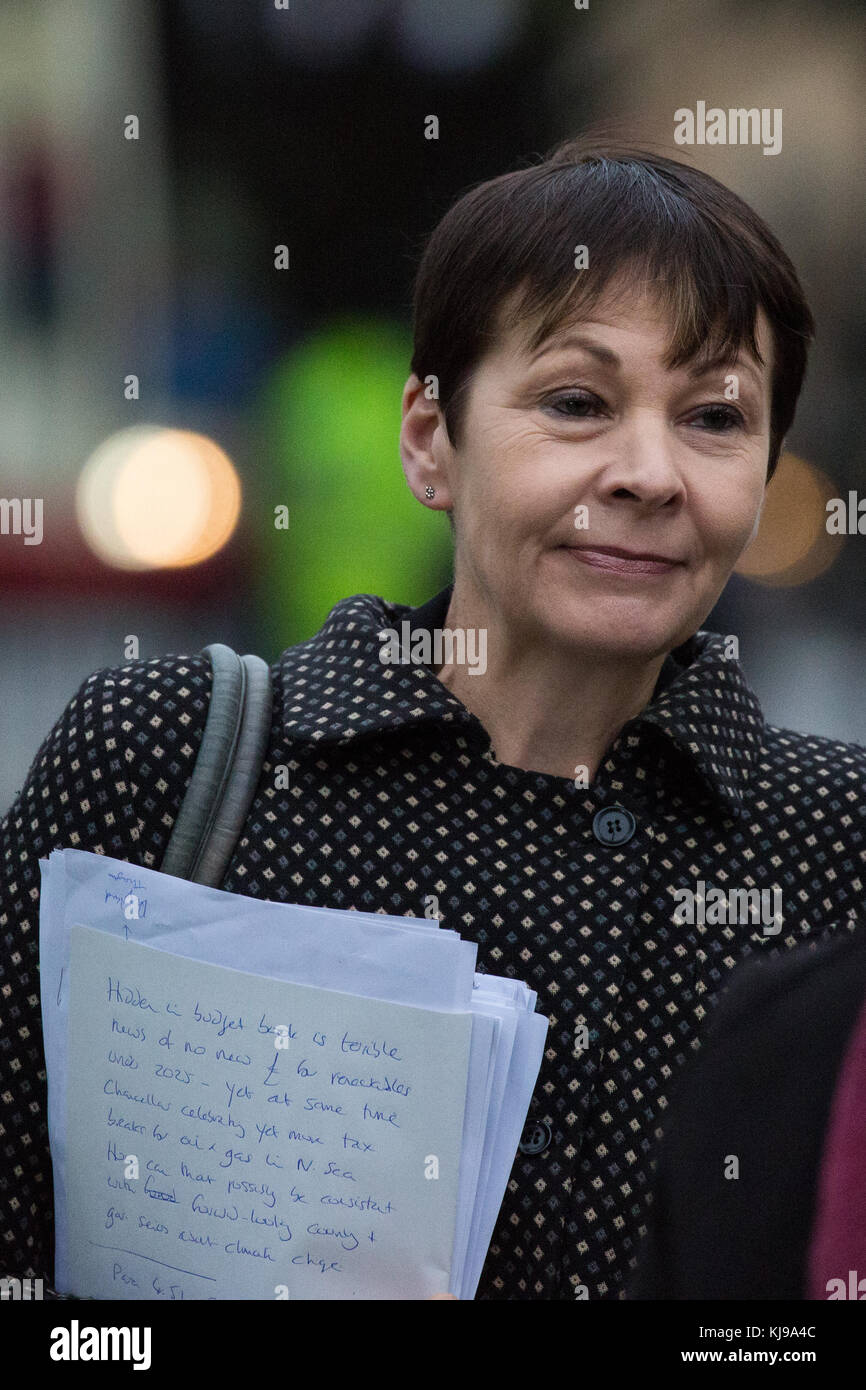 Hidden in budget book is terrible
news of no new £ for renewables
until 2025 - yet at same time
Chancellor celebrating yet more tax
breaks for oil & gas in N. Sea
How can that possibly be consistent
with forward-looking country &
gov. serious about climate change
Para 4.51
alamy
alamy
Image ID: KJ9A4C
www.alamy.com